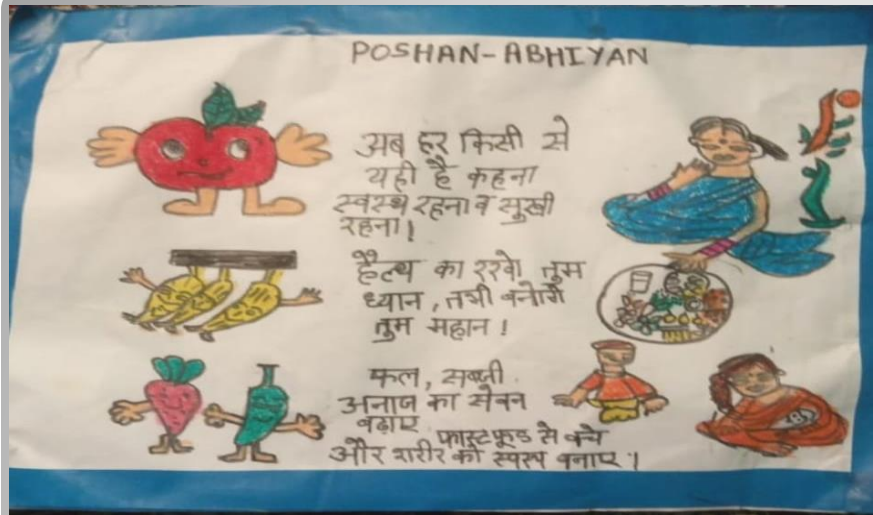 POSHAN-ABHIYAN
अब हर किसी से
यही है कहना
स्वस्थ रहना व सुखी
रहना।
हैल्थ का रखो तुम
ध्यान, तभी बनोगे
तुम महान!
फल, सब्जी
अनाज का सेवन
बढ़ाए फास्टफूड से बचे
और शरीर को स्वस्थ बनाए।